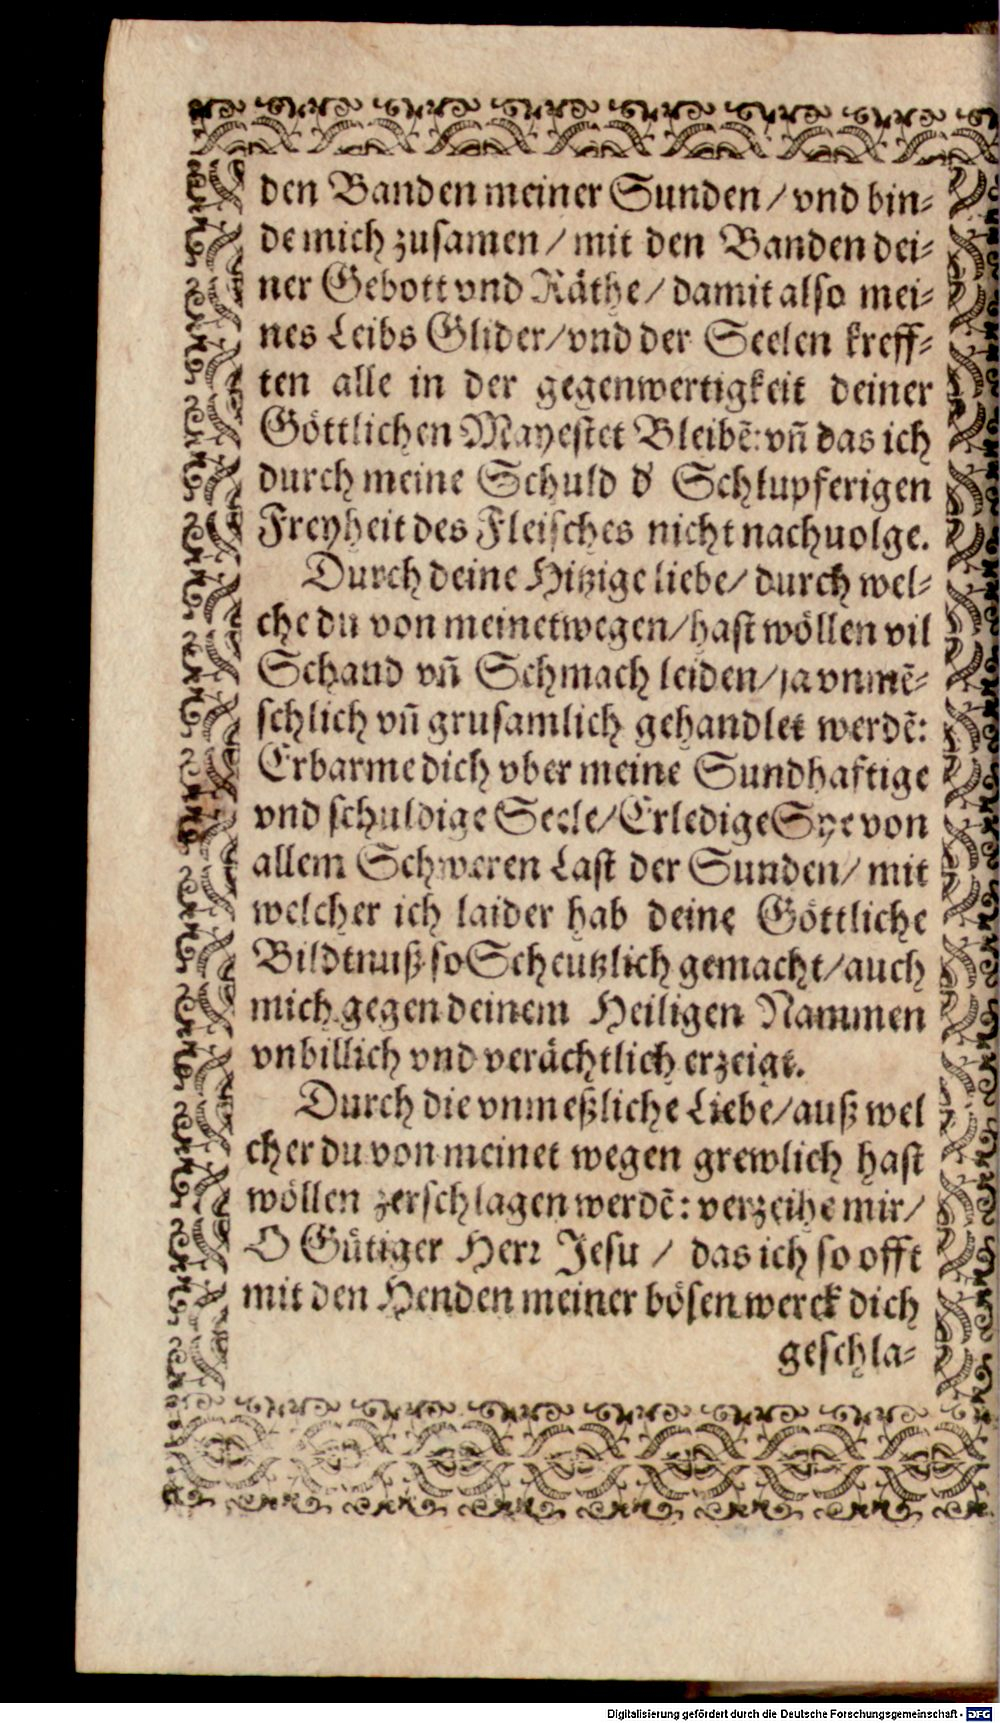 den Banden meiner Sunden / vnd bin⸗
de mich zusamen / mit den Banden dei⸗
ner Gebott vnd Räthe / damit also mei⸗
nes Leibs Glider / vnd der Seelen kreff⸗
ten alle in der gegenwertigkeit deiner
Göttlichen Mayestet Bleibẽ: vñ das ich
durch meine Schuld dʼ Schlupferigen
Freyheit des Fleisches nicht nachuolge.
Durch deine Hitzige liebe / durch wel⸗
che du von meinetwegen / hast wöllen vil
Schand vñ Schmach leiden / ja vnmẽ⸗
schlich vñ grusamlich gehandlet werdẽ:
Erbarme dich vber meine Sundhaftige
vnd schuldige Seele / Erledige Sye von
allem Schweren Last der Sunden / mit
welcher ich laider hab deine Göttliche
Bildtnuß so Scheutzlich gemacht / auch
mich gegen deinem Heiligen Nammen
vnbillich vnd verächtlich erzeigt.
Durch die vnmeßliche Liebe / auß wel
cher du von meinet wegen grewlich hast
wöllen zerschlagen werdẽ: verzeihe mir /
O Gütiger Herr Jesu / das ich so offt
mit den Henden meiner bösen werck dich
geschla⸗
Digitalisierung gefördert durch die Deutsche Forschungsgemeinschaft - DFG